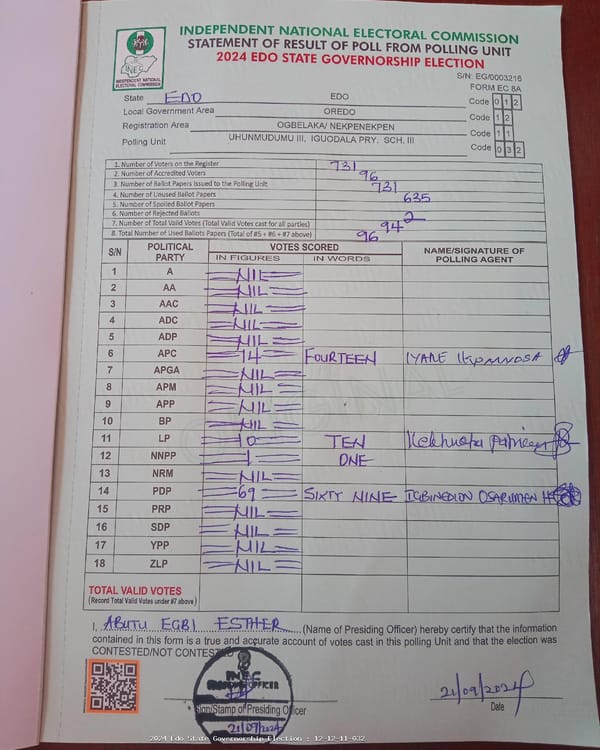 INDEPENDENT NATIONAL ELECTORAL COMMISSION
STATEMENT OF RESULT OF POLL FROM POLLING UNIT
2024 EDO STATE GOVERNORSHIP ELECTION
INEC
INDEPENDENT NATIONAL ELECTORAL COMMISSION
S/N: EG/0003216
FORM EC 8A
State EDO EDO Code 0 1 2
Local Government Area OREDO Code 1 2
Registration Area OGBELAKA/ NEKPENEKPEN Code 1 1
Polling Unit UHUNMUDUMU III, IGUODALA PRY. SCH. III Code 0 3 2
1. Number of Voters on the Register 731
2. Number of Accredited Voters 96
3. Number of Ballot Papers Issued to the Polling Unit 731
4. Number of Unused Ballot Papers 635
5. Number of Spoiled Ballot Papers
6. Number of Rejected Ballots 2
7. Number of Total Valid Votes (Total Valid Votes cast for all parties) 94
8. Total Number of Used Ballots Papers (Total of #5 + #6 + #7 above) 96
S/N POLITICAL PARTY VOTES SCORED NAME/SIGNATURE OF POLLING AGENT
IN FIGURES IN WORDS
1 A NIL
2 AA NIL
3 AAC NIL
4 ADC NIL
5 ADP NIL
6 APC 14 FOURTEEN
7 APGA NIL
8 APM NIL
9 APP NIL
10 BP NIL
11 LP 10 TEN
12 NNPP 1 ONE
13 NRM NIL
14 PDP 69 SIXTY NINE IGBINEDION
15 PRP NIL
16 SDP NIL
17 YPP NIL
18 ZLP NIL
TOTAL VALID VOTES
(Record Total Valid Votes under #7 above)
I, ABUTU EGBI ESTHER (Name of Presiding Officer) hereby certify that the information
contained in this form is a true and accurate account of votes cast in this polling Unit and that the election was
CONTESTED/NOT CONTESTED
INEC
Sign/Stamp of Presiding Officer
21/09/2024
21/09/2024
Date
2024 Edo State Governorship Election : 12-12-11-032